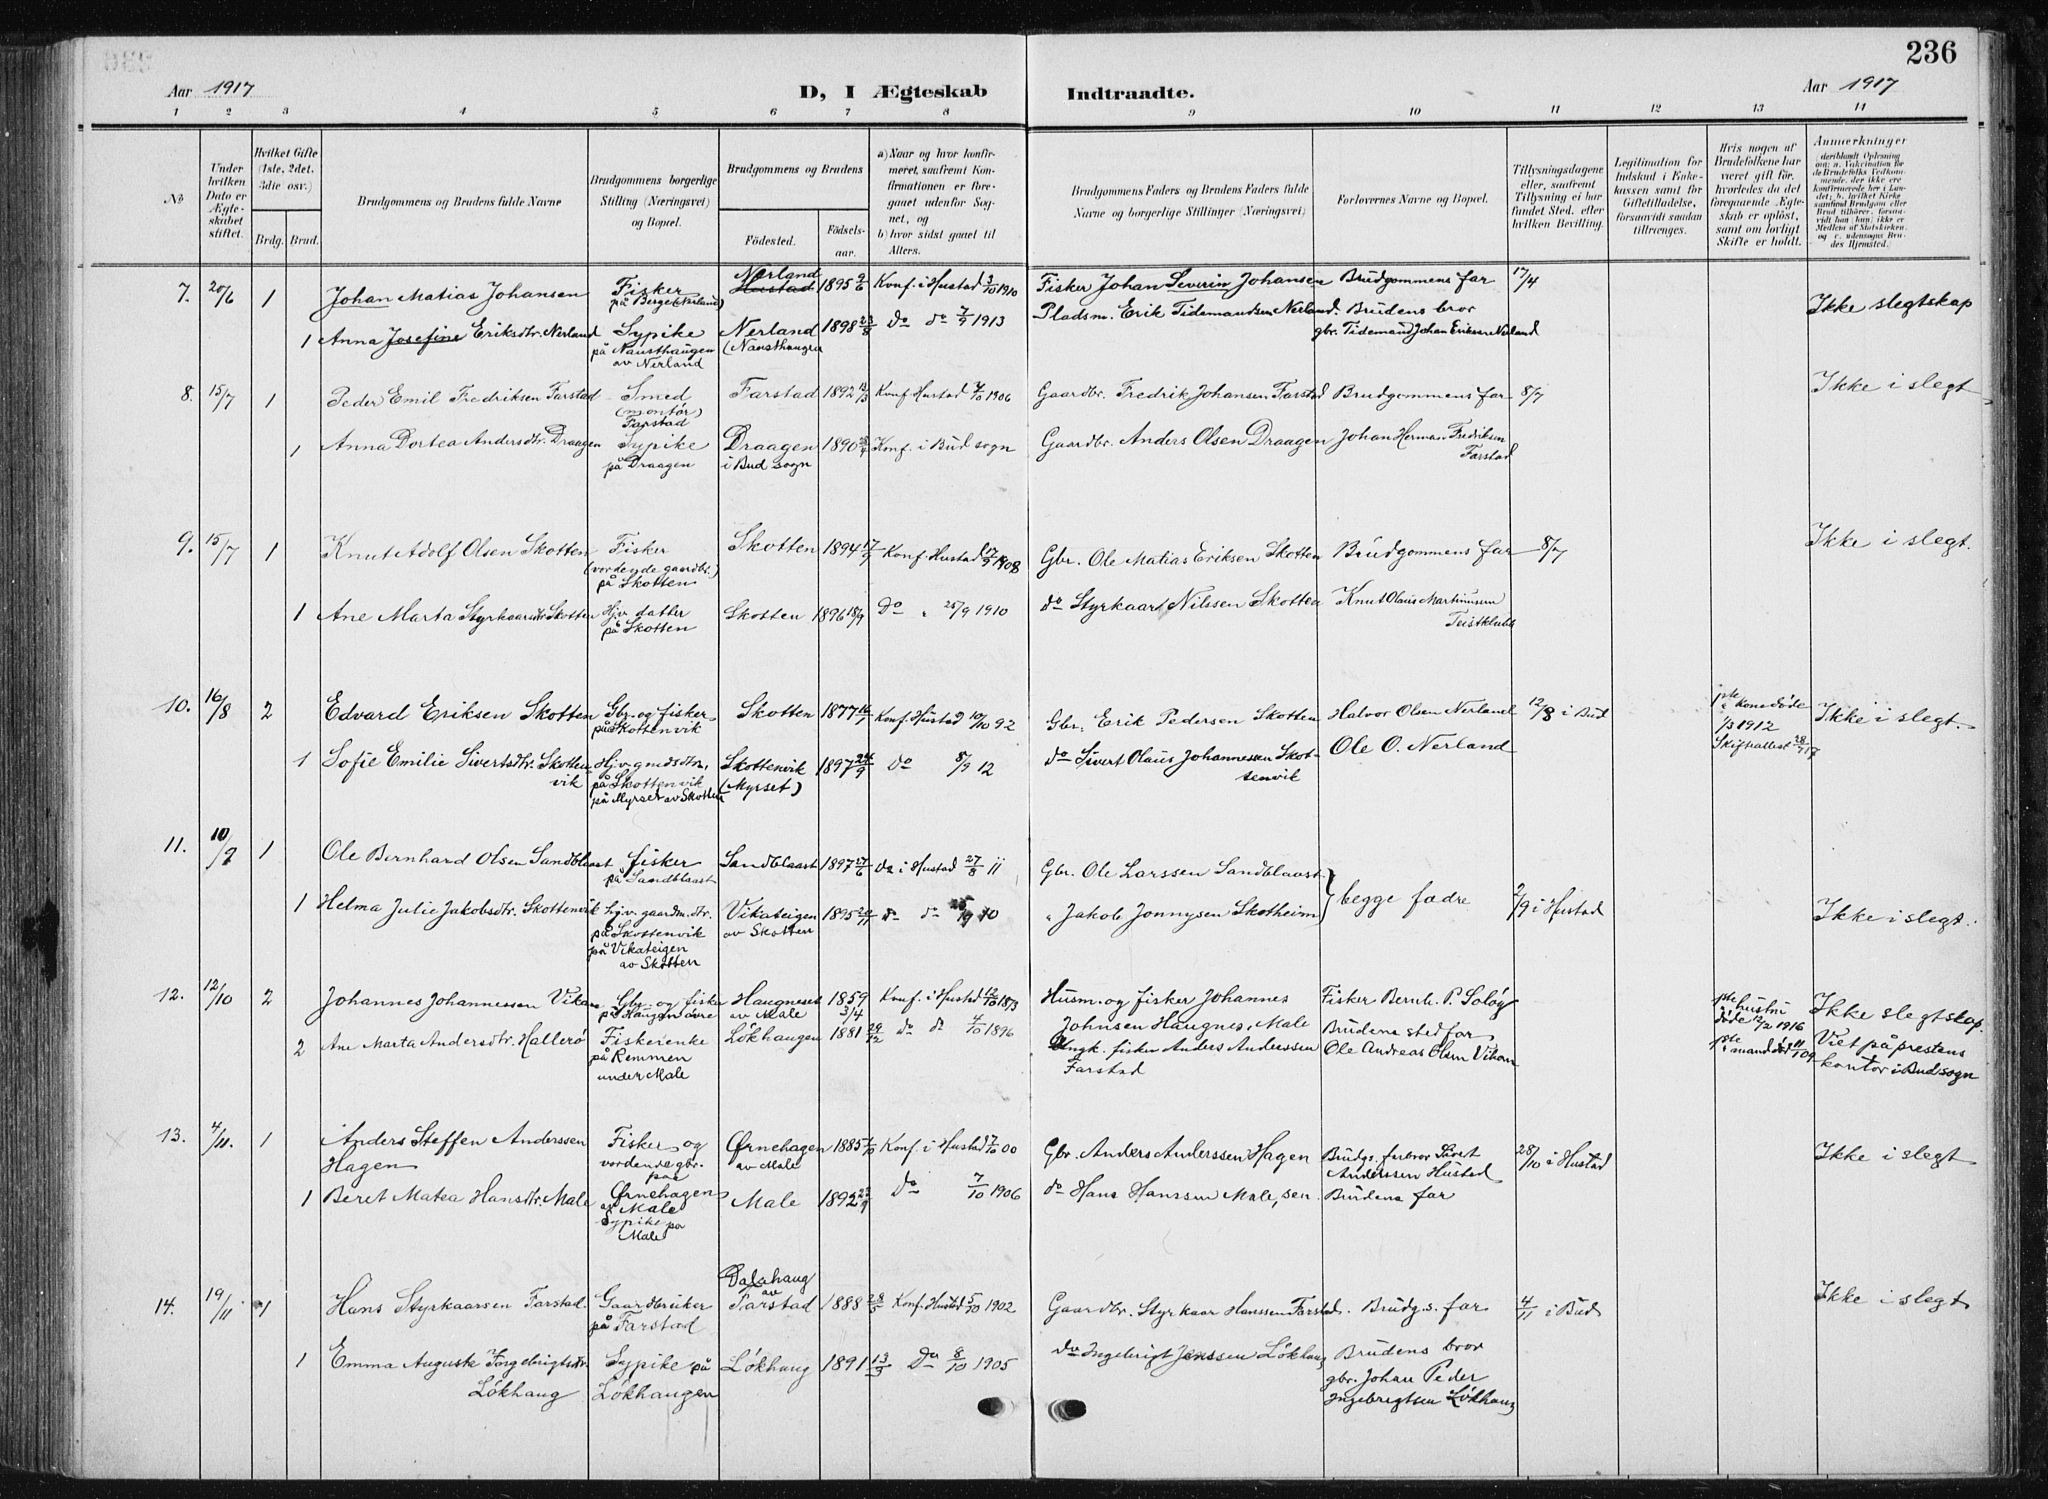 236
Aar 1917
D, I Ægteskab Indtraadte.
Aar 1917
1 2 3 4 5 6 7 8 9 10 11 12 13 14
No
Under hvilken Dato er Ægteskabet stiftet.
Hvilket Gifte (1ste, 2det, 3die osv.)
Brdg. Brud.
Brudgommens og Brudens fulde Navne
Brudgommens borgerlige Stilling (Næringsvei) og Bopæl.
Brudgommens og Brudens
Födested.
Födsels-aar.
a) Naar og hvor konfirmeret, saafremt Konfirmationen er foregaaet udenfor Sognet, og
b) hvor sidst gaaet til Alters.
Brudgommens Faders og Brudens Faders fulde Navne og borgerlige Stillinger (Næringsvei)
Forlovernes Navne og Bopæl.
Tillysningsdagene eller, saafremt Tillysning ei har fundet Sted, efter hvilken Bevilling.
Legitimation for Indskud i Enkekassen samt for Giftetilladelse, forsaavidt saadan tiltrænges.
Hvis nogen af Brudefolkene har været gift för, hvorledes da det foregaaende Ægteskab er oplöst, samt om lovligt Skifte er holdt.
Anmærkninger
deriblandt Oplysning om: a. Vakcination for de Brudefolks Vedkommende, der ikke ere konfirmerede her i Landet; b. hvilket Kirkesamfund Brudgom eller Brud tilhører, forsaavidt han (hun) ikke er Medlem af Statskirken, og c. udensogns Brudes Hjemsted.
7. 20/6 1 Johan Matias Johansen Fisker på Berget (Nerland) Nerland Hustad 1895 2/6 Konf. i Hustad 3/10 1910 Fisker Johan Severin Johansen Brudgommens far 17/4 Ikke slegtskap
1 Anna Josefine Eriksdtr. Nerland Sypike på Nausthaugen av Nerland Nerland (Nausthaugen 1898 23/8 do do 7/9 1913 Pladsm. Erik Tidemandsen Nerland. Brudens bror gbr. Tidemand Johan Eriksen Nerland
8. 15/7 1 Peder Emil Fredriksen Farstad Smed (montør) Farstad Farstad 1892 12/3 Konf Hustad 7/10 1906 Gaardbr. Fredrik Johansen Farstad Brudgommens far 8/7 Ikke i slegt
1 Anna Dortea Andersdtr. Draagen Sypike på Draagen Draagen i Bud sogn 1890 Konf. i Bud sogn Gaardbr. Anders Olsen Draagen Johan Herman Fredriksen Farstad
9. 15/7 1 Knut Adolf Olsen Skotten Fisker (vordende gaardbr.) på Skotten Skotten 1894 17/7 Konf. Hustad 17/9 1908 Gbr. Ole Matias Eriksen Skotten Brudgommens far 8/7 Ikke i slegt.
1 Ane Marta Styrkaarsdtr Skotten Hjv. datter på Skotten Skotten 1896 18/9 do " 25/9 1910 do Styrkaar Nilssen Skotten Knut Olaus Martinussen Teistklubb
10. 16/8 2 Edvard Eriksen Skotten Gbr. og fisker på Skottenvik Skotten 1877 Konf. Hustad 10/10 92 Gbr. Erik Pedersen Skotten Halvor Olsen Nerland 12/8 i Bud 1ste kone døde 1/3 1912 Skifteattest 28/7 17 Ikke i slegt.
1 Sofie Emilie Sivertsdtr. Skottenvik Hjv. gmdsdtr. på Skottenvik på Myrset av Skotten Skottenvik (Myrset) 1897 24/9 do 8/9 12 do Sivert Olaus Johannessen Skottenvik Ole O. Nerland
11. 10/9 1 Ole Bernhard Olsen Sandblaast fisker på Sandblaast Sandblaast 1897 17/6 do i Hustad 27/8 11 Gbr. Ole Larssen Sandblaast begge fædre 2/9 i Hustad
1 Helma Julie Jakobsdtr. Skottenvik hjv. gaardm. dtr. på Skottenvik på Vikateigen av Skotten Vikateigen av Skotten 1895 20/11 do do 25/9 10 " Jakob Jonnysen Skotheim Ikke i slegt.
12. 12/10 2 Johannes Johannessen Vikan Gbr. og fisker på Haugen øvre Haugneset av Male 1859 3/4 Konf. i Hustad 12/10 1873 Husm. og fisker Johannes Johnsen Haugnes, Male Fisker Bernh. P. Soløy 1ste hustru døde 12/2 1916 Ikke slegtskap.
2 Ane Marta Andersdtr. Hallerø Fiskerenke på Remmen under Male Løkhaugen 1881 29/12 do do 4/10 1896 Ungk. fisker Anders Anderssen Farstad Brudens stedfar Ole Andreas Olsen Vikan 1ste mand død 11/1 09 Viet på prestens kontor i Bud sogn
13. 4/11. 1 Anders Steffen Anderssen Hagen Fisker og vordende gbr. paa Ørnehagen av Male Ørnehagen av Male 1885 1/10 Konf. i Hustad 7/10 00 Gbr. Anders Anderssen Hagen Brudg. farbror Sivert Anderssen Hustad 28/10 i Hustad Ikke i slegt
1 Beret Matea Hansdtr. Male Sypike paa Male Male 1892 do 7/10 1906 do Hans Hanssen Male, sen. Brudens far
14. 19/11 1 Hans Styrkaarsen Farstad Gaardbruker på Farstad Dalahaug av Farstad 1888 Konf. Hustad 5/10 1902 Gaardbr. Styrkaar Hanssen Farstad. Brudg.s. far 4/11 i Bud Ikke i slegt
1 Emma Auguste Ingebrigtsdtr. Løkhaug Sypike på Løkhaugen Løkhaug 1891 13/3 Do 8/10 1905 do Ingebrigt Jenssen Løkhaug Brudens bror gbr. Johan Peder Ingebrigtsen Løkhaug